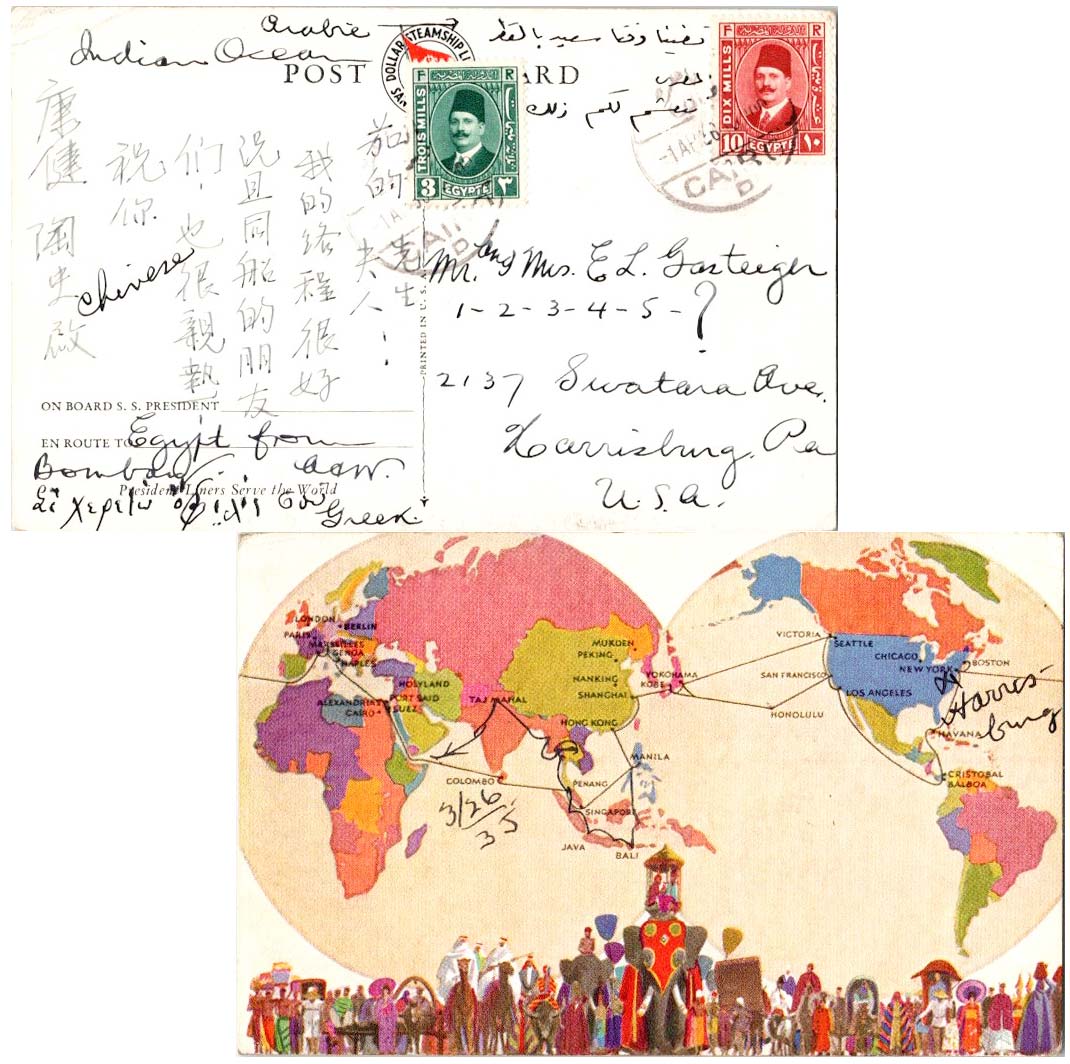 Arabic
Indian Ocean
POST CARD
DOLLAR STEAMSHIP LI
F R
TROIS MILLS
3 EGYPTE ٣
F R
DIX MILLS
10 EGYPTE ١٠
قضينا وقتا سعيد بالقطر
لكم ذلك
-1 AP
CAIRO
D
CAIR
D
茄的 先生
夫人!
我的路程很好
况且同船的朋友
们,也很親熱
祝你
康健 陶史啟
Chinese
Mr. and Mrs. E L. Gasteiger
1-2-3-4-5-?
2137 Swatara Ave.
Harrisburg, Pa
U.S.A.
PRINTED IN U.S.
ON BOARD S. S. PRESIDENT
EN ROUTE TO Egypt from
Bombay
President Liners Serve the World
Greek
LONDON
BERLIN
PARIS
MARSEILLES
GENOA
NAPLES
HOLYLAND
ALEXANDRIA
PORT SAID
CAIRO
SUEZ
TAJ MAHAL
MUKDEN
PEKING
NANKING
SHANGHAI
HONG KONG
YOKOHAMA
KOBE
MANILA
COLOMBO
PENANG
SINGAPORE
JAVA
BALI
3/26
35
VICTORIA
SEATTLE
CHICAGO
NEW YORK
BOSTON
SAN FRANCISCO
LOS ANGELES
HONOLULU
HAVANA
CRISTOBAL
BALBOA
Harris-
burg